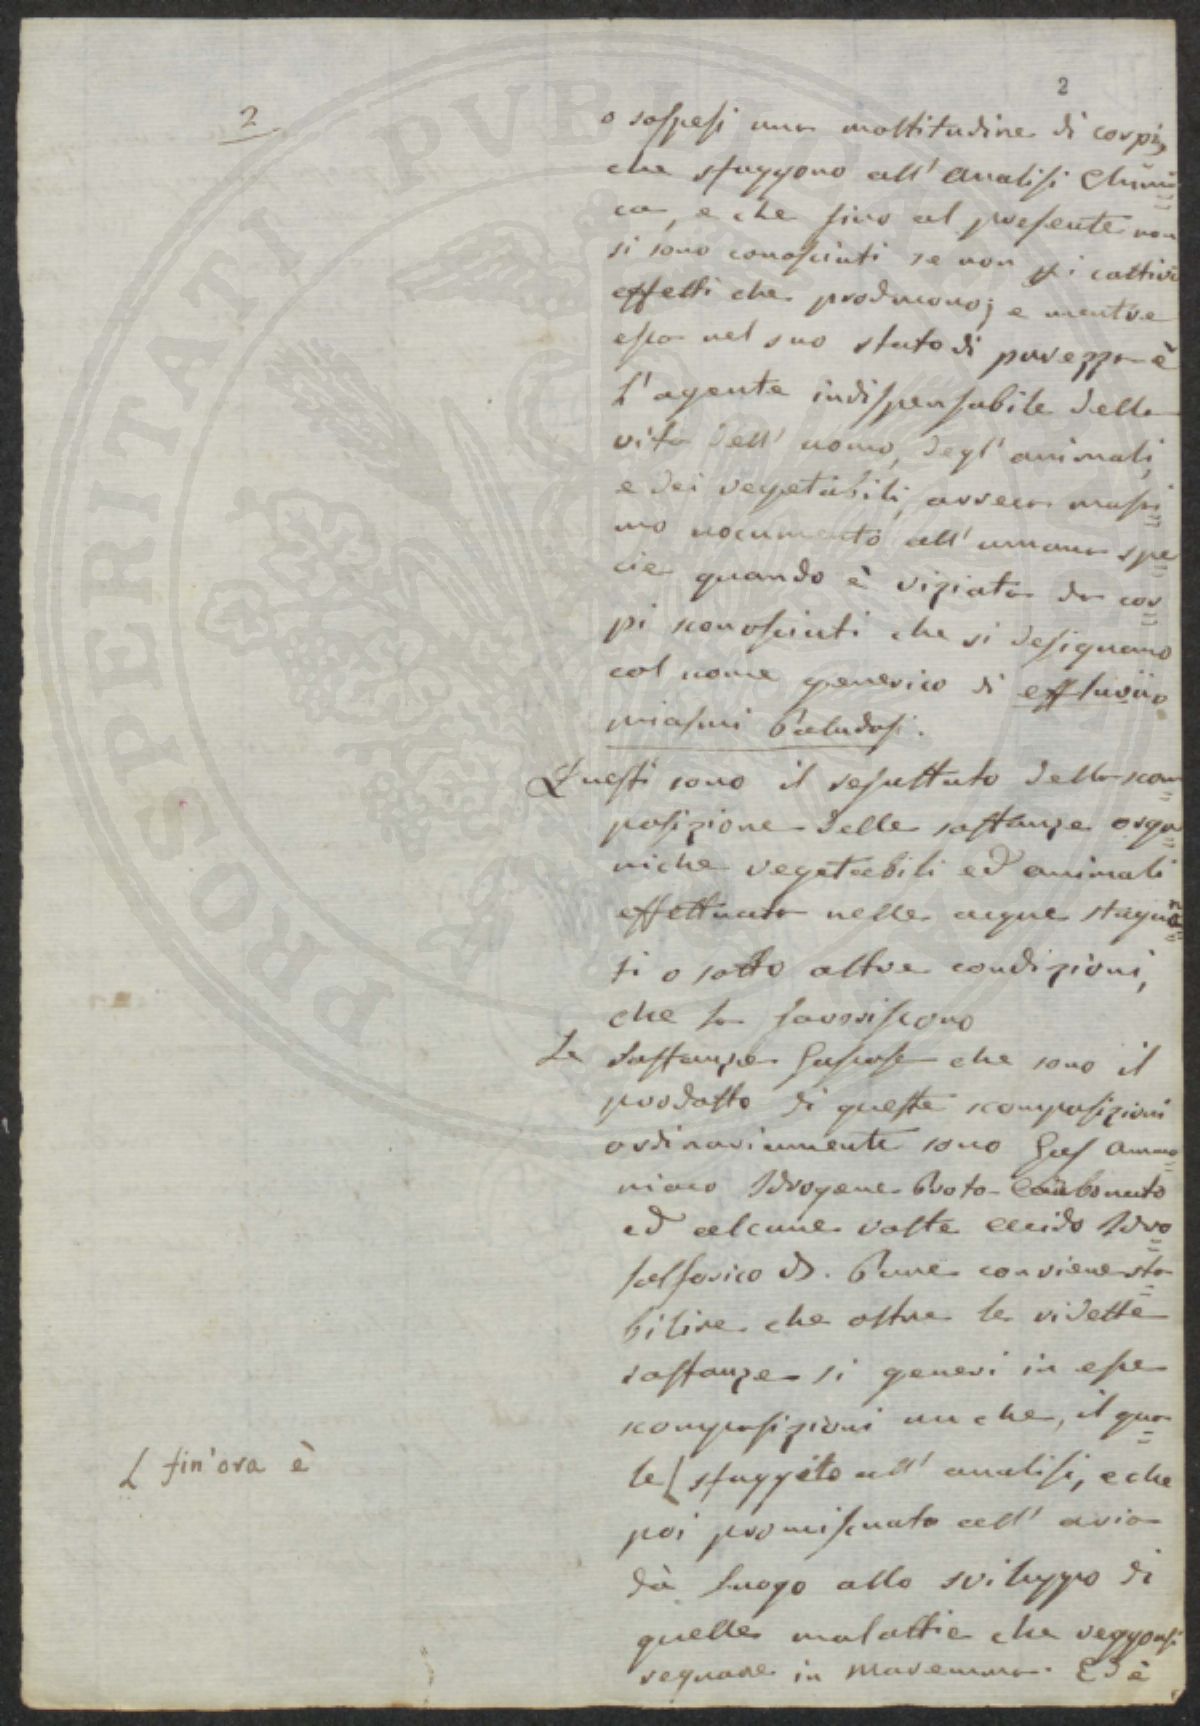 2
2
o sospesi una moltitudine di corpi,
che sfuggono all' Analisi Chimi=
ca, e che fino al presente non
si sono conosciuti se non pi cattivi
effetti che producono; e mentre
essa nel suo stato di purezza è
l' agente indispensabile della
vita dell' uomo, degl' animali,
e dei vegetabili, arreca massi=
mo nocumento all' umana spe=
cie quando è viziata da cor=
pi sconosciuti che si designano
col nome generico di effluvii o
miasmi Paludosi.
Questi sono il resultato della scom=
posizione delle sostanze orga=
niche vegetabili ed animali
effettuata nelle acque stagnan=
ti o sotto altre condizioni,
che la favoriscono
Le Sostanze Gasose che sono il
prodotto di queste scomposizioni
ordinariamente sono Gas Ammo=
niaco Idrogene Proto-Carbonato
ed alcune volte Acido Idro=
solforico &. Pure conviene sta=
bilire che oltre le ridette
sostanze si generi in esse
scomposizioni un che, il qua=
le [ sfuggito all' analisi, e che
L fin'ora è
poi promiscuato all' aria
dà luogo allo sviluppo di
quelle malattie che veggonsi
regnare in Maremma. Ed è
PROSPERITATI PVBLICAE